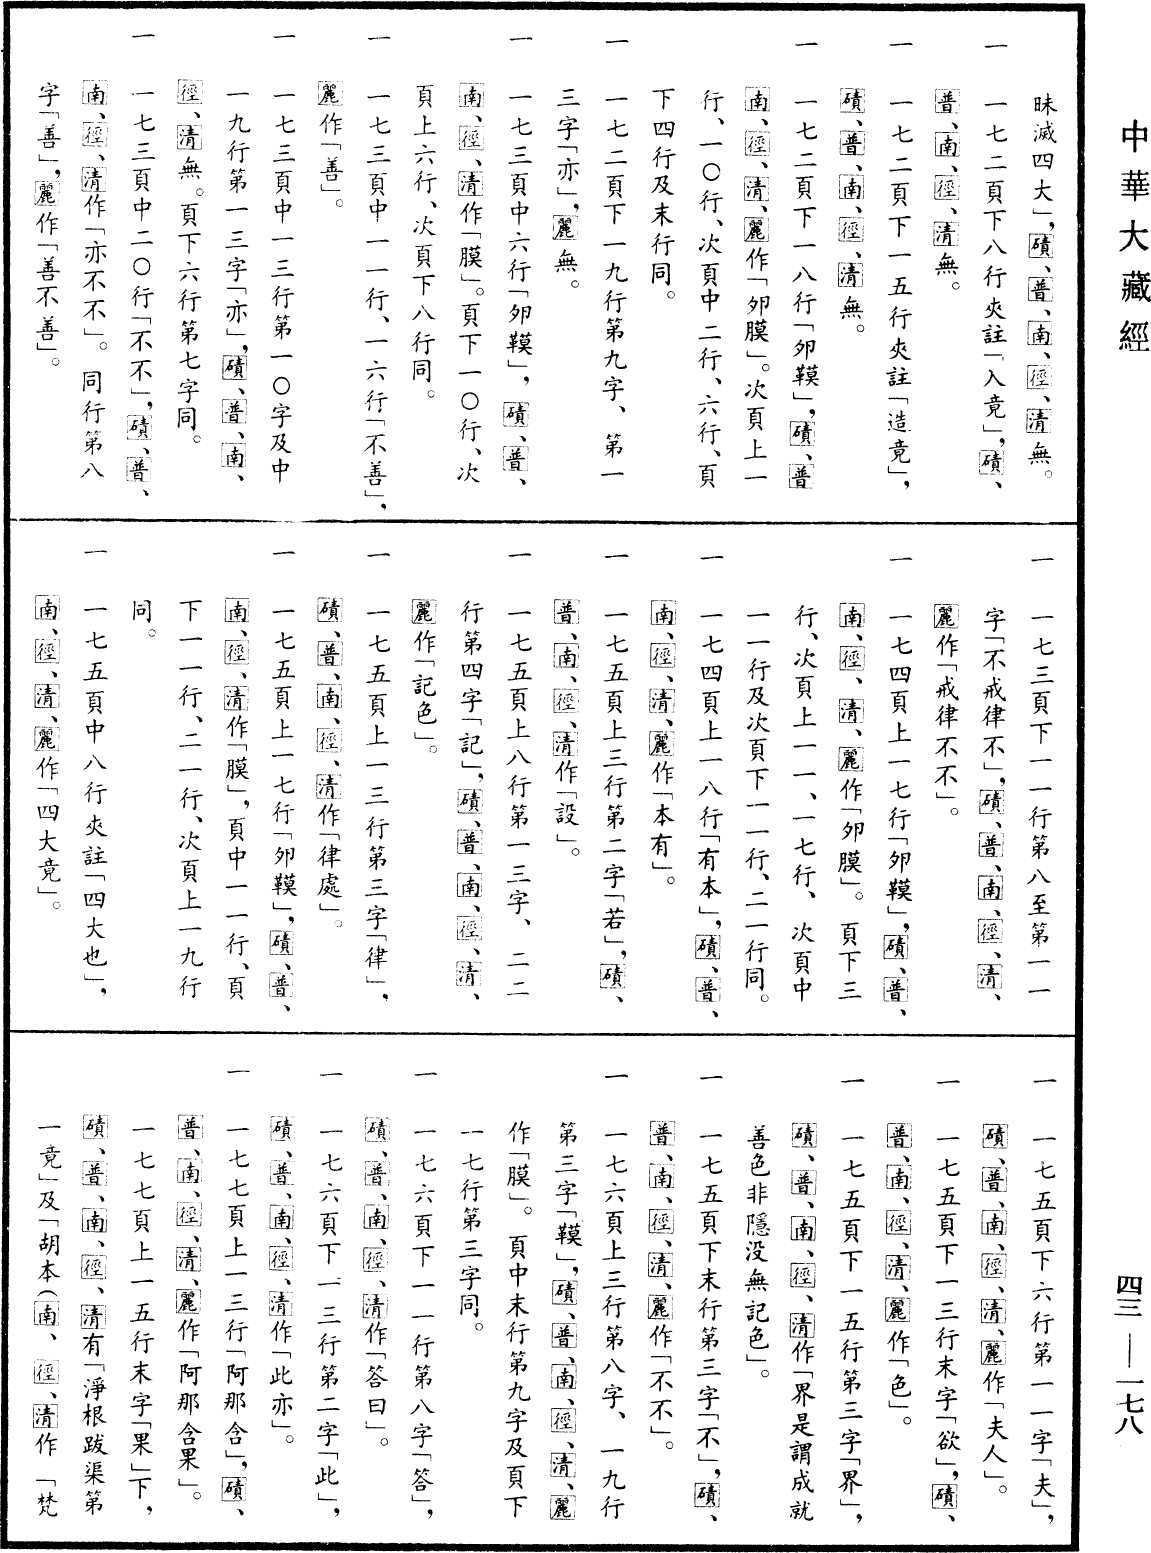 中華大藏經
昧滅四大」，磧、普、南、徑、清無。
一　一七二頁下八行夾註「入竟」，磧、
普、南、徑、清無。
一　一七二頁下一五行夾註「造竟」，
磧、普、南、徑、清無。
一　一七二頁下一八行「夘鞕」，磧、普
南、徑、清、麗作「夘膜」。次頁上一
行、一〇行、次頁中二行、六行、頁
下四行及末行同。
一　一七二頁下一九行第九字、第一
三字「亦」，麗無。
一　一七三頁中六行「夘鞕」，磧、普、
南、徑、清作「膜」。頁下一〇行、次
頁上六行、次頁下八行同。
一　一七三頁中一一行、一六行「不善」，
麗作「善」。
一　一七三頁中一三行第一〇字及中
一九行第一三字「亦」，磧、普、南、
徑、清無。頁下六行第七字同。
一　一七三頁中二〇行「不不」，磧、普、
南、徑、清作「亦不不」。同行第八
字「善」，麗作「善不善」。
一　一七三頁下一一行第八至第一一
字「不戒律不」，磧、普、南、徑、清、
麗作「戒律不不」。
一　一七四頁上一七行「夘鞕」，磧、普、
南、徑、清、麗作「夘膜」。頁下三
行、次頁上一一、一七行、次頁中
一一行及次頁下一一行、二一行同。
一　一七四頁上一八行「有本」，磧、普、
南、徑、清、麗作「本有」。
一　一七五頁上三行第二字「若」，磧、
普、南、徑、清作「設」。
一　一七五頁上八行第一三字、二二
行第四字「記」，磧、普、南、徑、清、
麗作「記色」。
一　一七五頁上一三行第三字「律」，
磧、普、南、徑、清作「律處」。
一　一七五頁上一七行「夘鞕」，磧、普、
南、徑、清作「膜」，頁中一一行、頁
下一一行、二一行、次頁上一九行
同。
一　一七五頁中八行夾註「四大也」，
南、徑、清、麗作「四大竟」。
一　一七五頁下六行第一一字「夫」，
磧、普、南、徑、清、麗作「夫人」。
一　一七五頁下一三行末字「欲」，磧、
普、南、徑、清、麗作「色」。
一　一七五頁下一五行第三字「界」，
磧、普、南、徑、清作「界是謂成就
善色非隱没無記色」。
一　一七五頁下末行第三字「不」，磧、
普、南、徑、清、麗作「不不」。
一　一七六頁上三行第八字、一九行
第三字「鞕」，磧、普、南、徑、清、麗
作「膜」。頁中末行第九字及頁下
一七行第三字同。
一　一七六頁下一一行第八字「答」，
磧、普、南、徑、清作「答曰」。
一　一七六頁下一三行第二字「此」，
磧、普、南、徑、清作「此亦」。
一　一七七頁上一三行「阿那含」，磧、
普、南、徑、清、麗作「阿那含果」。
一七七頁上一五行末字「果」下，
磧、普、南、徑、清有「淨根跋渠第
一竟」及「胡本（南、徑、清作「梵
四三—一七八